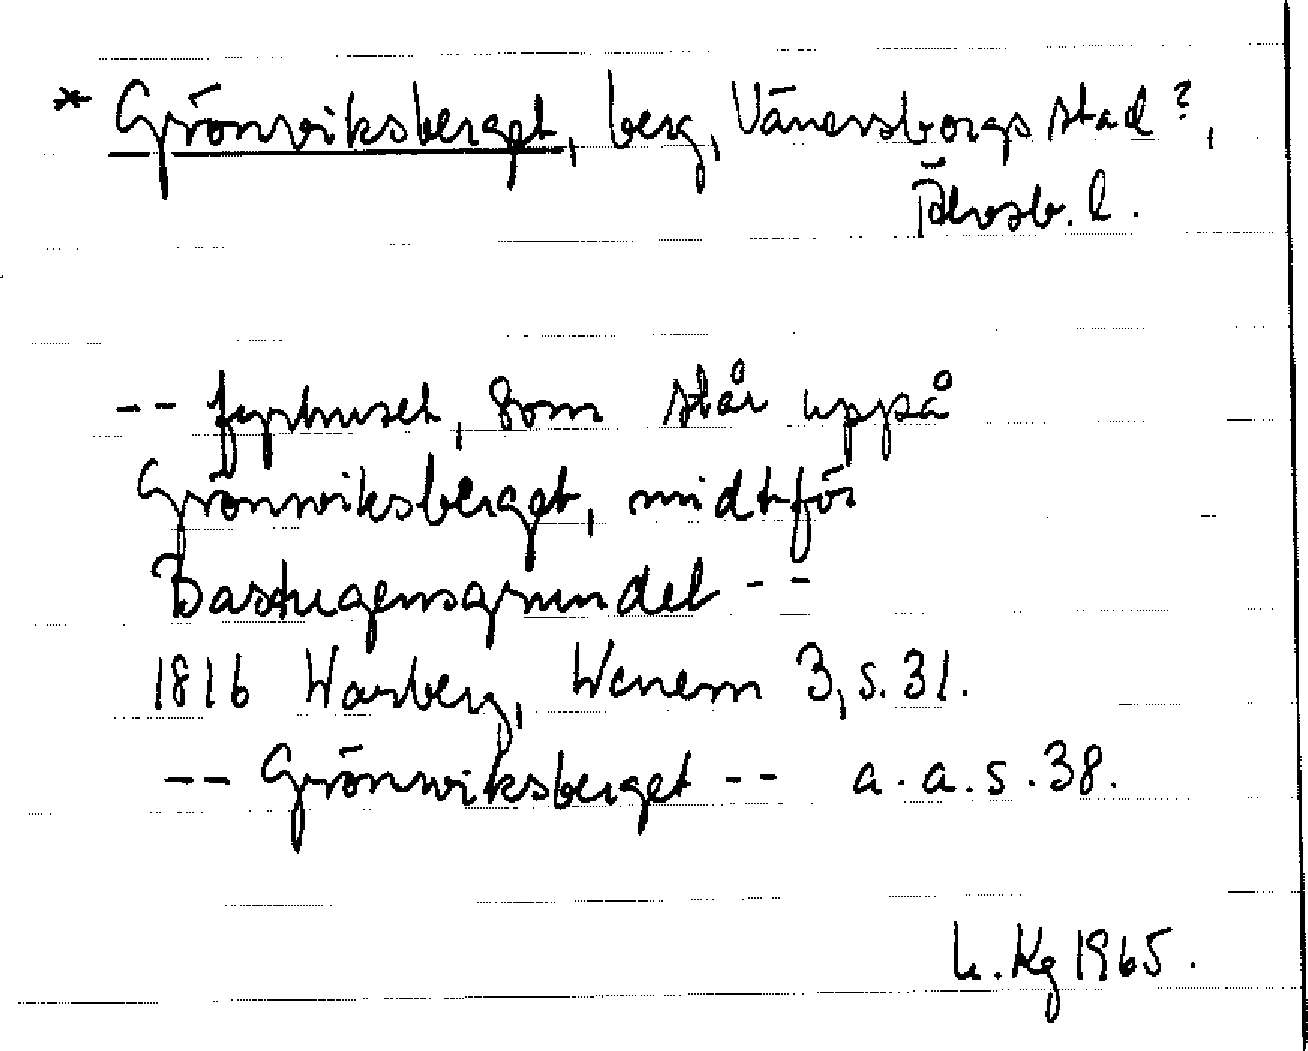 * Grönviksberget, berg, Vänersborgs stad?,
Älvsb. l.
-- fyrhuset, som står uppå
Grönviksberget, midtför
Bastugemsgrundet --
1816 Warberg, Wenern 3, s. 31.
-- Grönviksberget -- a. a. s. 38.
h. Kg 1965.